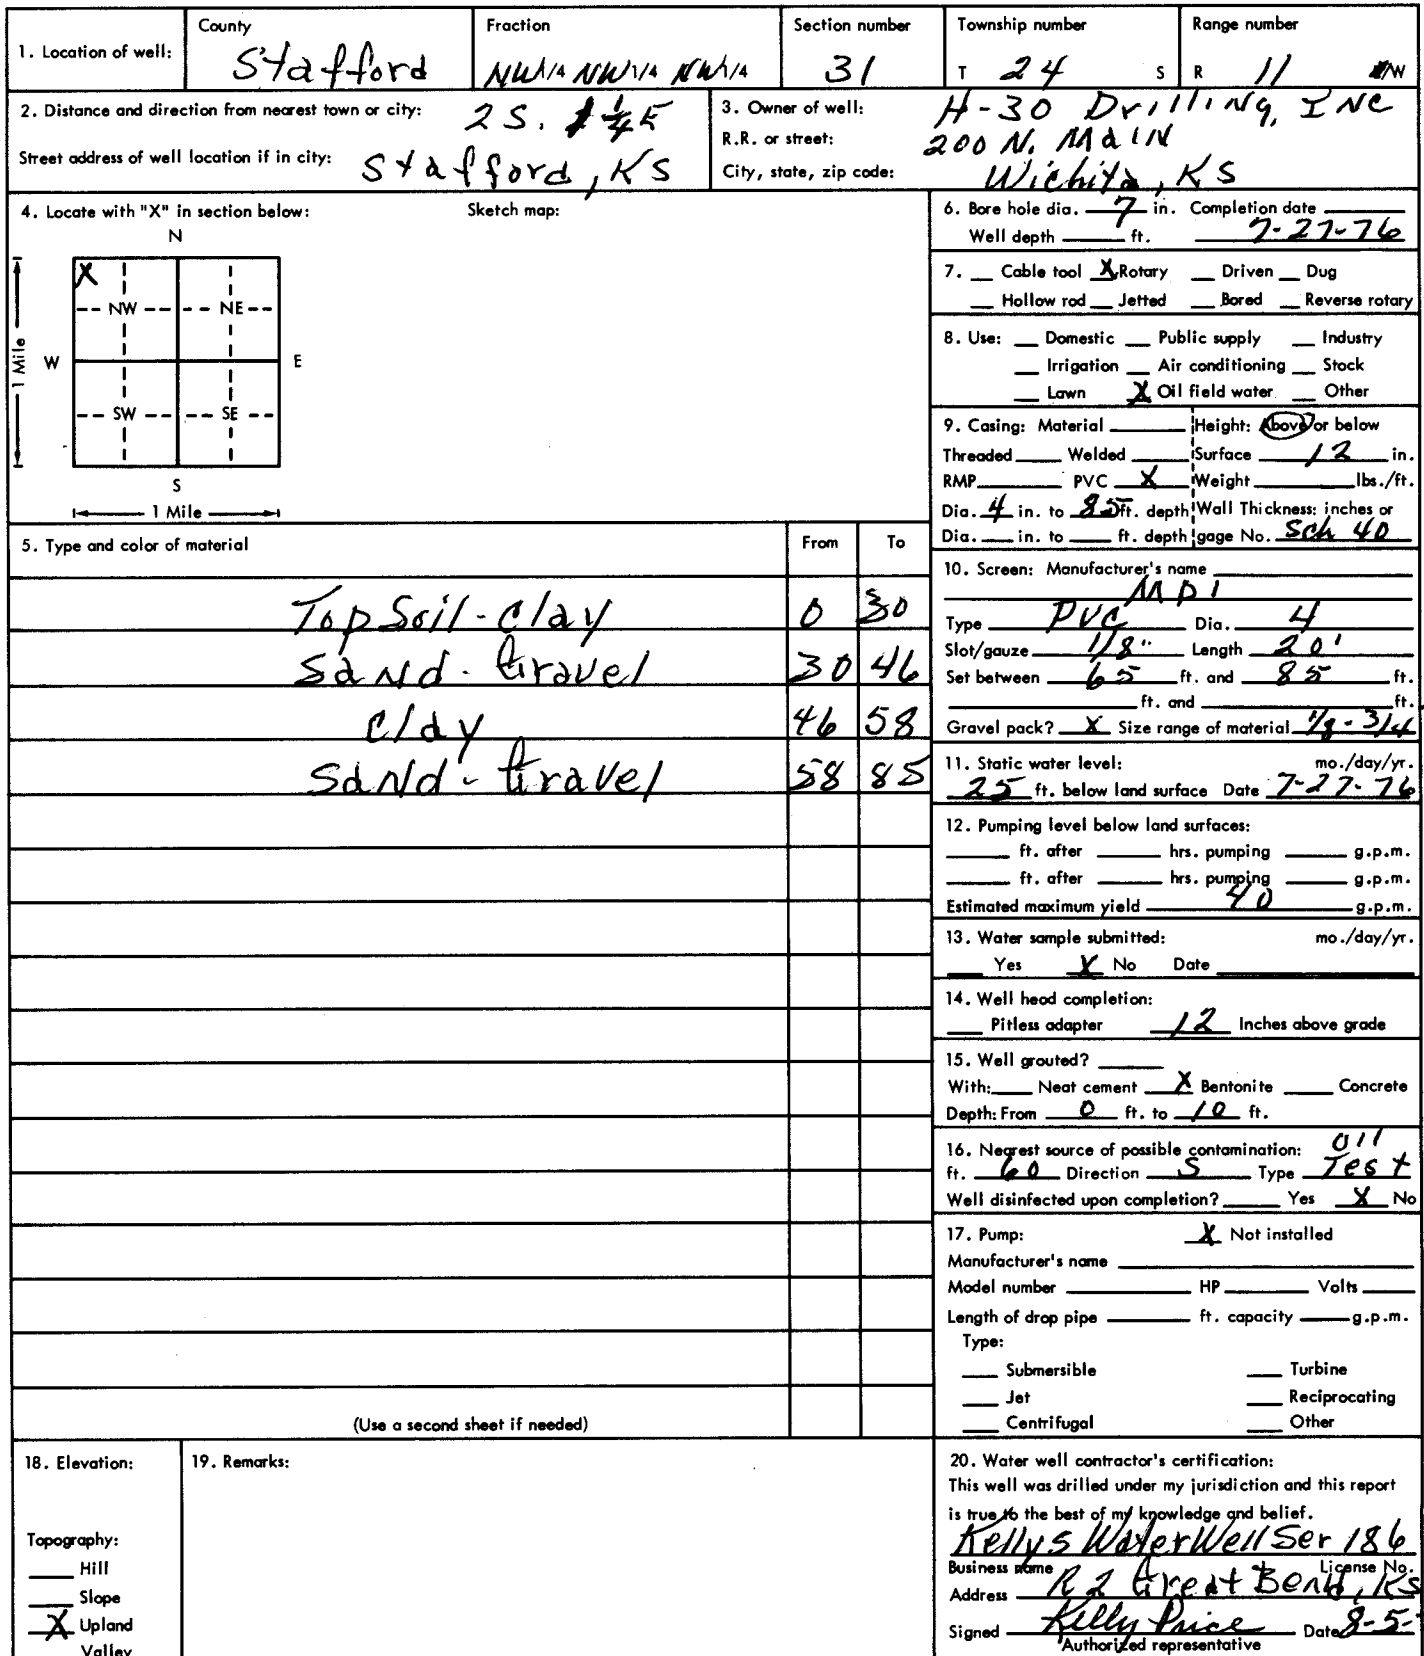 1. Location of well: County Stafford Fraction NW1/4 NW1/4 NW1/4 Section number 31 Township number T 24 S Range number R 11 /W
2. Distance and direction from nearest town or city: 2 S. 1/4 E
Street address of well location if in city: Stafford, KS
3. Owner of well: H-30 Drilling, INC
R.R. or street: 200 N. Main
City, state, zip code: Wichita, KS
4. Locate with "X" in section below: Sketch map:
N
X
NW NE
W E
1 Mile
SW SE
S
1 Mile
5. Type and color of material From To
Top Soil - Clay 0 30
Sand - Gravel 30 46
Clay 46 58
Sand - Gravel 58 85
(Use a second sheet if needed)
6. Bore hole dia. 7 in. Completion date
Well depth ft. 7-27-76
7. Cable tool X Rotary Driven Dug
Hollow rod Jetted Bored Reverse rotary
8. Use: Domestic Public supply Industry
Irrigation Air conditioning Stock
Lawn X Oil field water Other
9. Casing: Material Height: Above or below
Threaded Welded Surface 12 in.
RMP PVC X Weight lbs./ft.
Dia. 4 in. to 85 ft. depth Wall Thickness: inches or
Dia. in. to ft. depth gage No. Sch 40
10. Screen: Manufacturer's name
MPI
Type PVC Dia. 4
Slot/gauze 1/8" Length 20'
Set between 65 ft. and 85 ft.
ft. and ft.
Gravel pack? X Size range of material 1/8 - 3/4
11. Static water level: mo./day/yr.
25 ft. below land surface Date 7-27-76
12. Pumping level below land surfaces:
ft. after hrs. pumping g.p.m.
ft. after hrs. pumping g.p.m.
Estimated maximum yield 40 g.p.m.
13. Water sample submitted: mo./day/yr.
Yes X No Date
14. Well head completion:
Pitless adapter 12 Inches above grade
15. Well grouted?
With: Neat cement X Bentonite Concrete
Depth: From 0 ft. to 10 ft.
16. Nearest source of possible contamination: oil
ft. 60 Direction S Type Test
Well disinfected upon completion? Yes X No
17. Pump: X Not installed
Manufacturer's name
Model number HP Volts
Length of drop pipe ft. capacity g.p.m.
Type:
Submersible Turbine
Jet Reciprocating
Centrifugal Other
18. Elevation:
Topography:
Hill
Slope
X Upland
Valley
19. Remarks:
20. Water well contractor's certification:
This well was drilled under my jurisdiction and this report
is true to the best of my knowledge and belief.
Kellys Water Well Ser 186
Business name License No.
Address R 2 Great Bend, KS
Signed Kelly Price Date 8-5-
Authorized representative